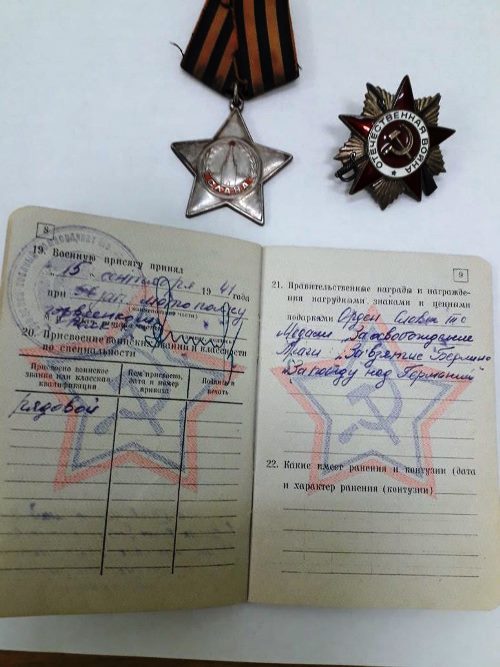 СЛАВА
ОТЕЧЕСТВЕННАЯ ВОЙНА
8
19. Военную присягу принял
"15" сентября 1941 года
при
20. Присвоение воинских званий и классности
по специальности
Присвоено воинское
звание или классная
квалификация
Кем присвоено,
дата и номер
приказа
Подпись и
печать
рядовой
9
21. Правительственные награды и награжде-
ния нагрудными знаками и ценными
подарками Орден Славы
Медали "За освобождение
Праги" "За взятие Берлина"
"За победу над Германией"
22. Какие имеет ранения и контузии (дата
и характер ранения (контузии)